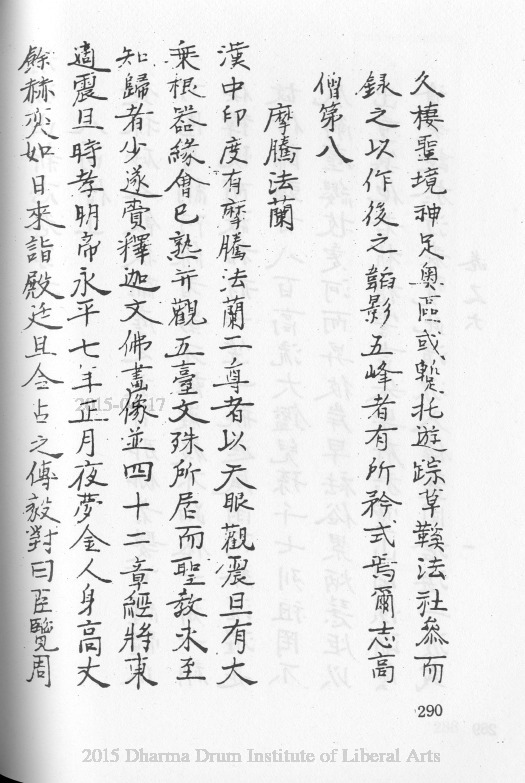 久棲聖境神足奧區或蹔托遊踪草鞵法社叅而
録之以作後之韜影五峰者有所矜式焉爾志高
僧第八
摩騰法蘭
漢中印度有摩騰法蘭二尊者以天眼觀震旦有大
乗根器緣會已熟并觀五臺文殊所居而聖教未至
知歸者少遂賷釋迦文佛畫像並四十二章經將東
適震旦時孝明帝永平七年正月夜夢金人身高丈
餘赫奕如日來詣殿廷旦令占之傅毅對曰臣覽周
290
2015-0 17
2015 Dharma Drum Institute of Liberal Arts